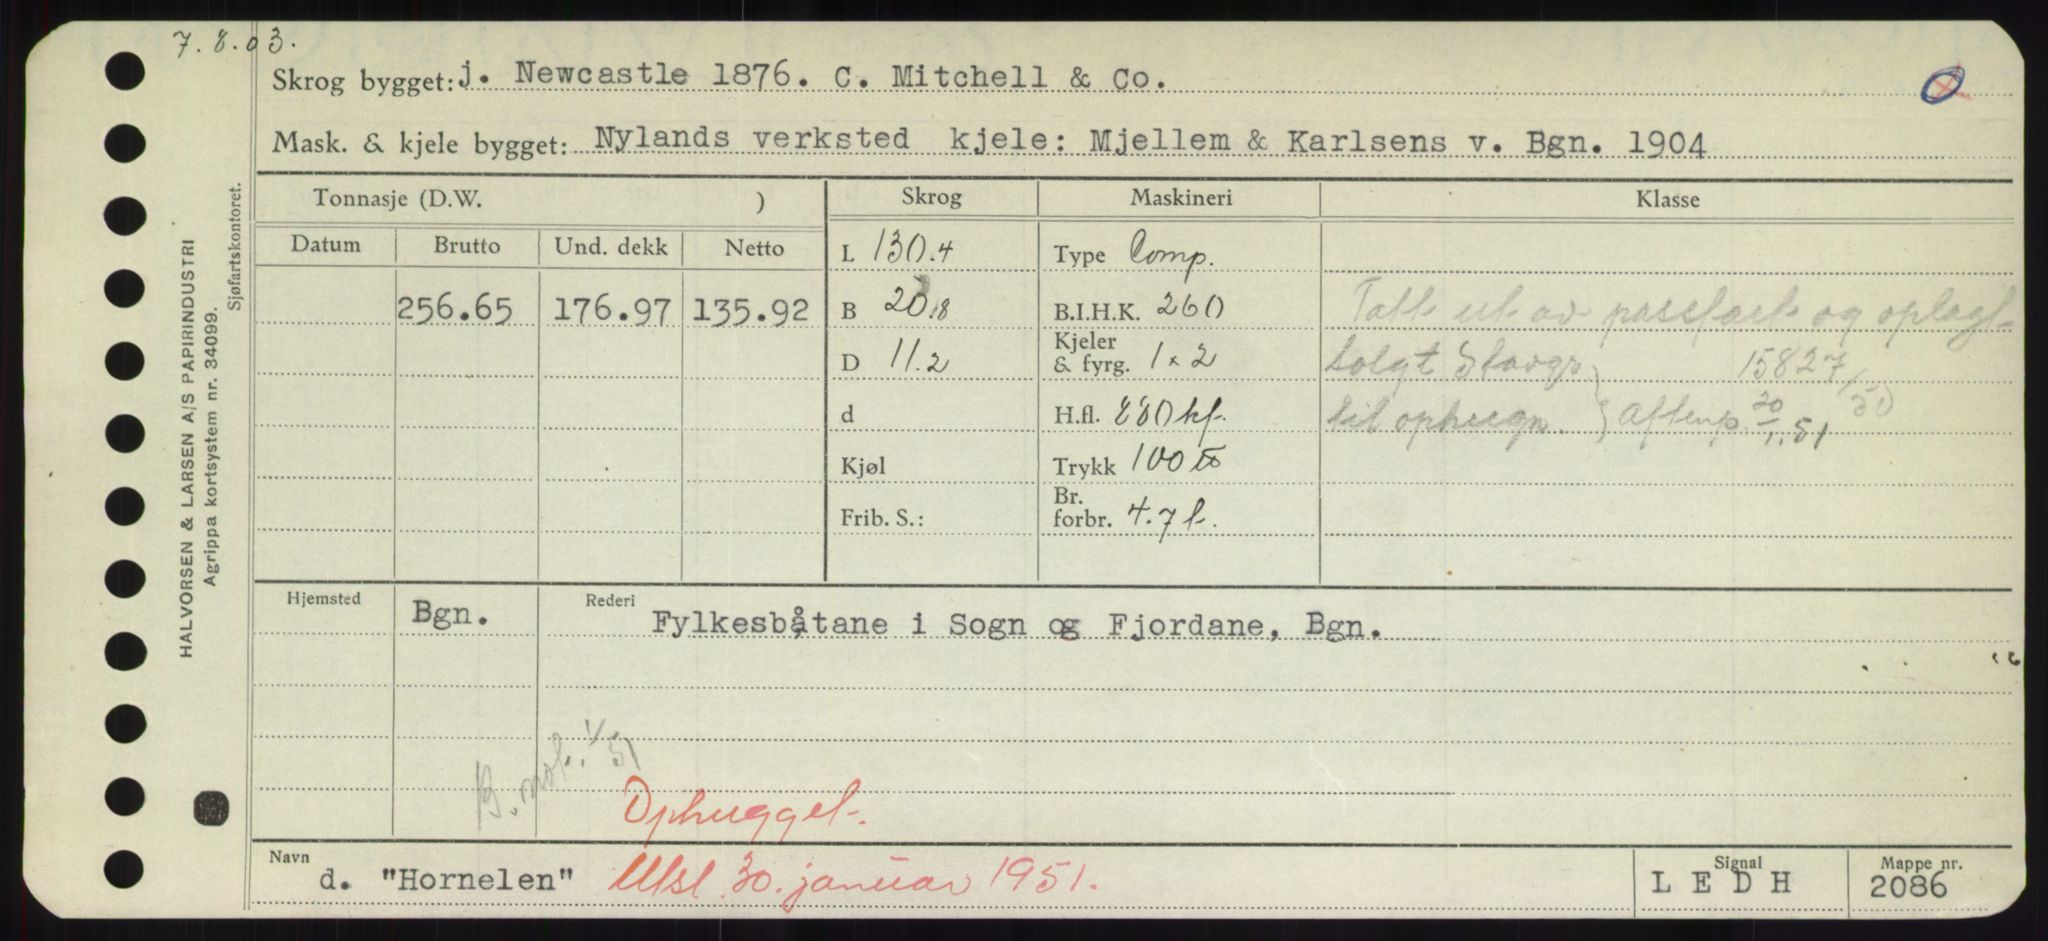 7.8.03.
Skrog bygget: j. Newcastle 1876. C. Mitchell & Co.
Mask. & kjele bygget: Nylands verksted kjele: Mjellem & Karlsens v. Bgn. 1904
Tonnasje (D.W. )
Skrog
Maskineri
Klasse
Datum
Brutto
Und. dekk
Netto
L 130.4
Type Comp.
256.65
176.97
135.92
B 20.8
B.I.H.K. 260
Tatt ut av passfart og oplagt
D 11.2
Kjeler
& fyrg. 1 x 2
solgt Stavgr. 15827/50
d
H.fl. 880 kf.
til ophugn. } Aftenp. 20/1.51
Kjøl
Trykk 100 lb
Frib. S.:
Br.
forbr. 4.7 t.
Hjemsted
Bgn.
Rederi
Fylkesbåtane i Sogn og Fjordane, Bgn.
B. not. 1/51
Ophugget.
Navn
d. "Hornelen"
Utsl. 30. januar 1951.
Signal
L E D H
Mappe nr.
2086
HALVORSEN & LARSEN A/S PAPIRINDUSTRI
Agrippa kortsystem nr. 34099.
Sjøfartskontoret.